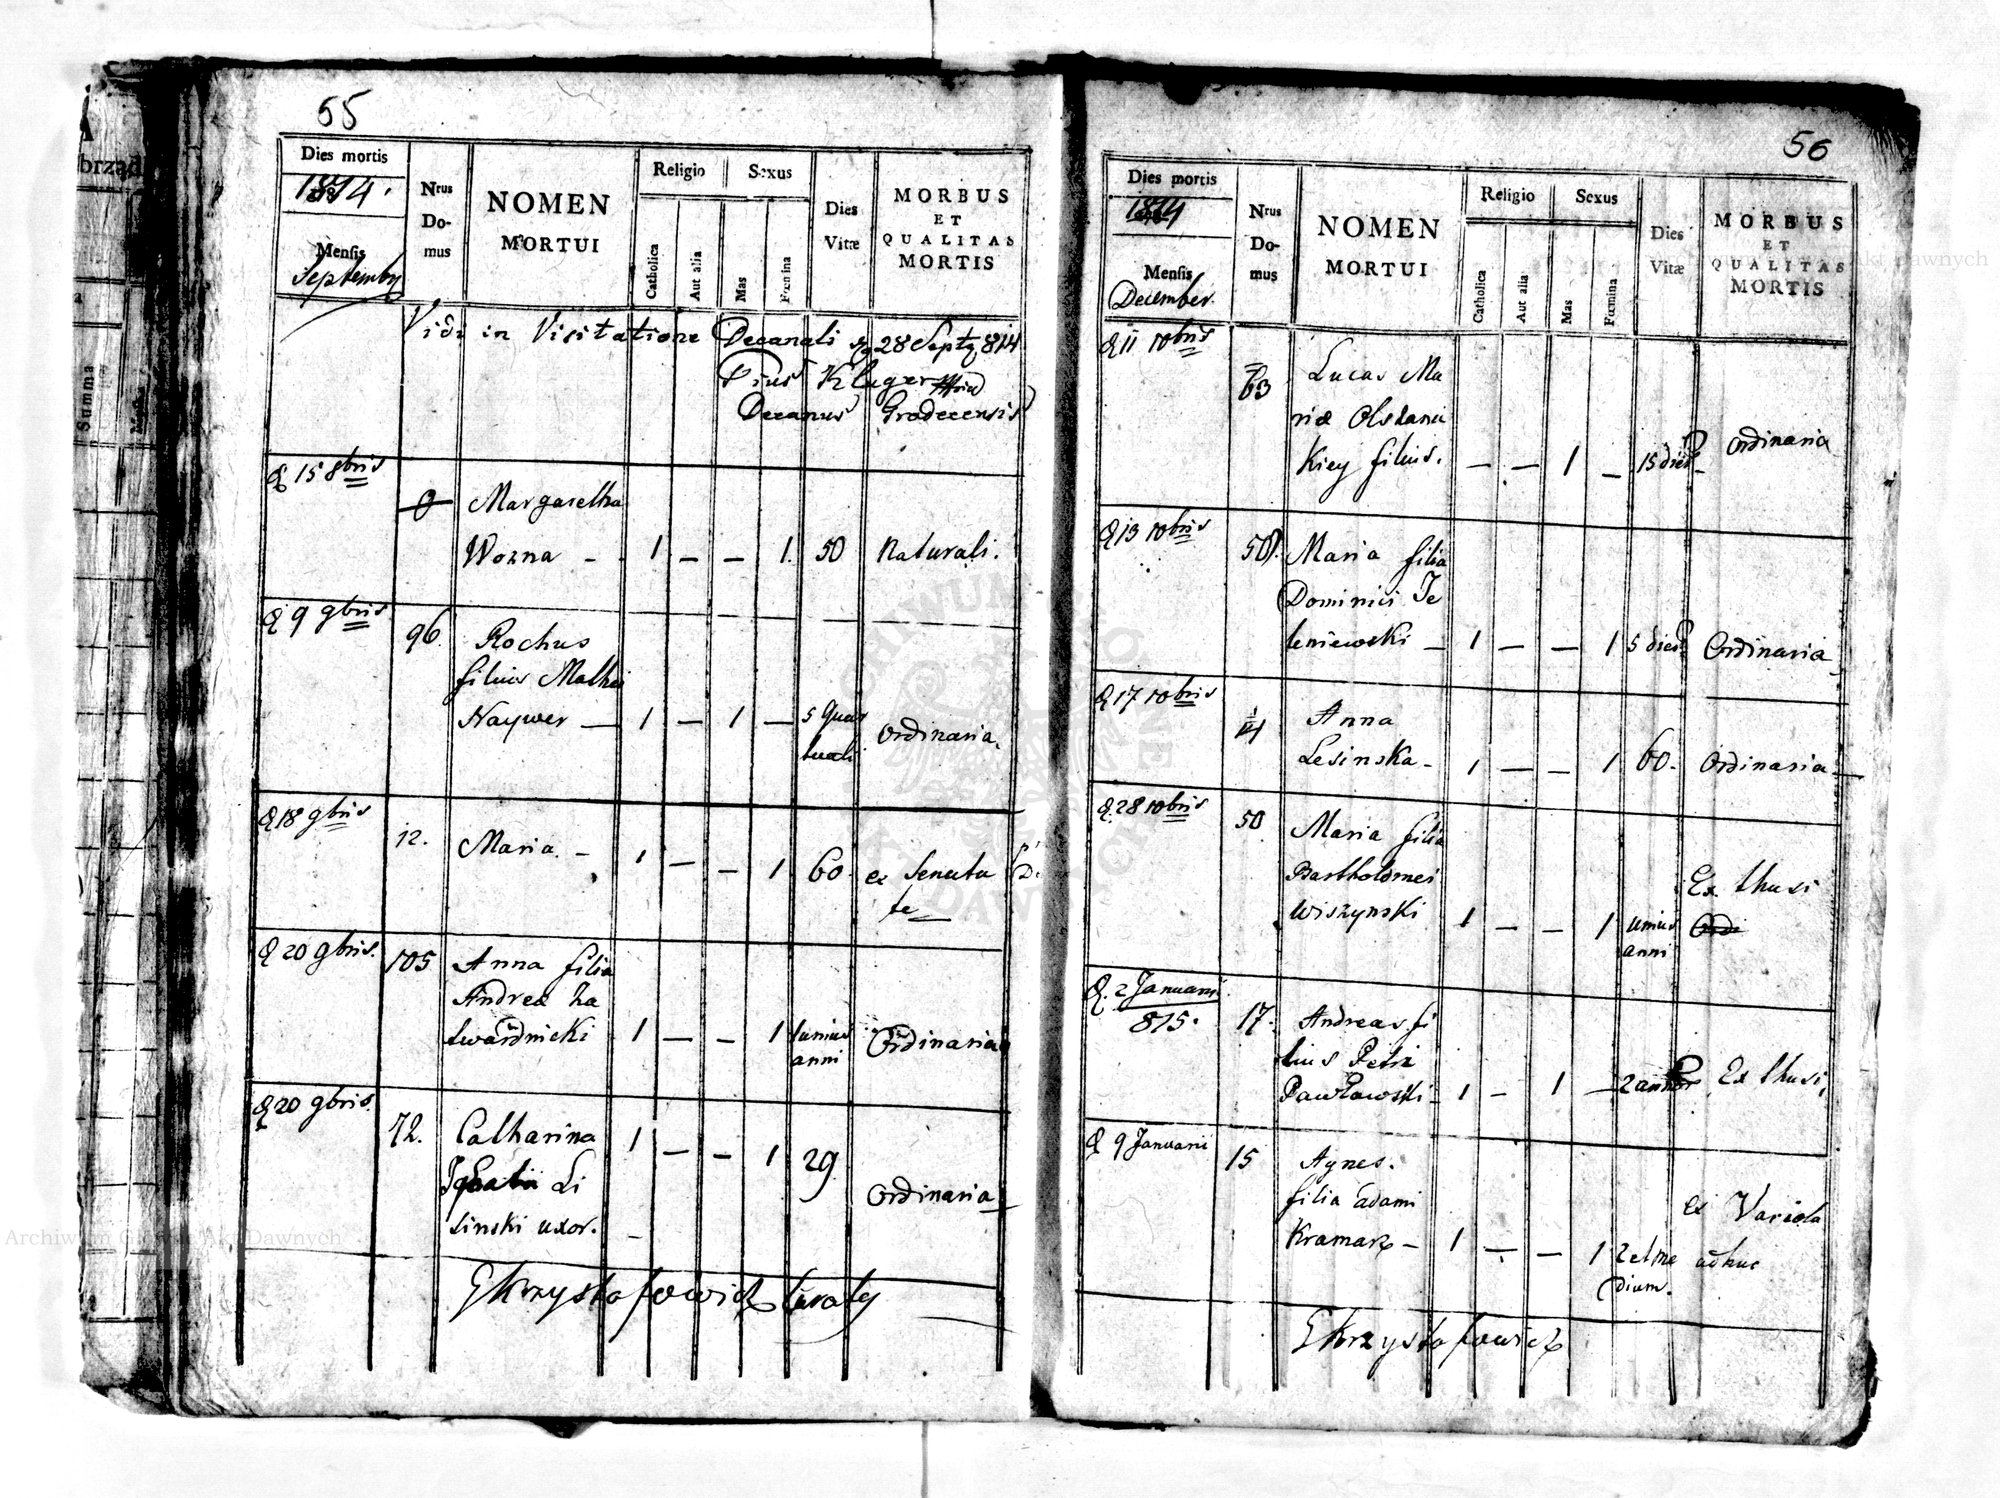 55
Dies mortis
1814.
Mensis
Septembris
Nrus
Do-
mus
NOMEN
MORTUI
Religio
Catholica
Aut alia
Sexus
Mas
Fœmina
Dies
Vitæ
MORBUS
ET
QUALITAS
MORTIS
Vidi in Visitatione Decanali 28 Septq 814
Pius Kluger
Decanus Gradecensis
15 8bris
0
Margaretha
Wozna - 1 — — 1. 50 Naturali.
9 9bris
96.
Rochus
filius Mathei
Naywer — 1 — 1 — 5 Quar
tuali
Ordinaria.
18 9bris
12. Maria. - 1 — — 1 60. ex Senectu
te
20 9bris. 105 Anna filia
Andreæ Za
twardnicki 1 — — 1 unius
anni
Ordinaria
20 9bris.
72. Catharina 1 — — 1 29
Ignatii Li
sinski uxor. -
Ordinaria
GKrzysztofowicz
56
Dies mortis
1814
Mensis
December.
Nrus
Do-
mus
NOMEN
MORTUI
Religio
Catholica
Aut alia
Sexus
Mas
Fœmina
Dies
Vitæ
MORBUS
ET
QUALITAS
MORTIS
11 10bris
63
Lucas Ma
riæ Olszanic
Kiey filius. — — 1 — 15 dies Ordinaria
13 10bris
50. Maria filia
Dominici Je
leniewski — 1 — — 1 5 dies Ordinaria
17 10bris
Anna
Lesinska - 1 — — 1 60. Ordinaria
28 10bris 50. Maria filia
Bartholomei
Wiszynski 1 — — 1 unius
anni
Ex thusi
Ordi
2 Januarii
815. 17. Andreas fi
lius Petri
Pawłowski - 1 — 1 — 2 annor Ex thusi
9 Januarii 15 Agnes.
filia Adami
Kramarz - 1 — — 1 2 et me
dium.
ex Variola
adhuc
GKrzysztofowicz
Archiwum Główne Akt Dawnych
Summa